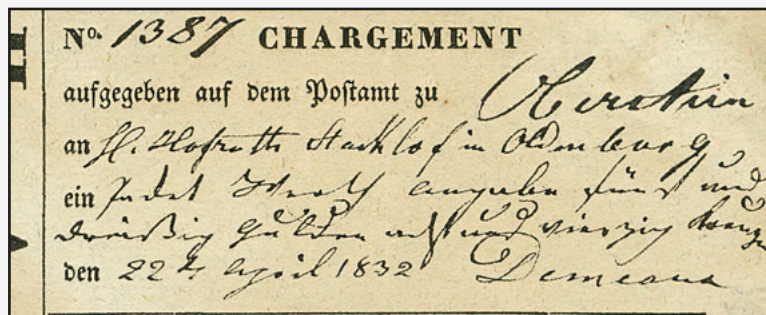 No. 1387 CHARGEMENT
aufgegeben auf dem Postamt zu Oberstein
an H. Hofrath Starklof in Oldenburg
ein Werth angabe fünf und
dreißig Gulden acht und vierzig
den 22 April 1832